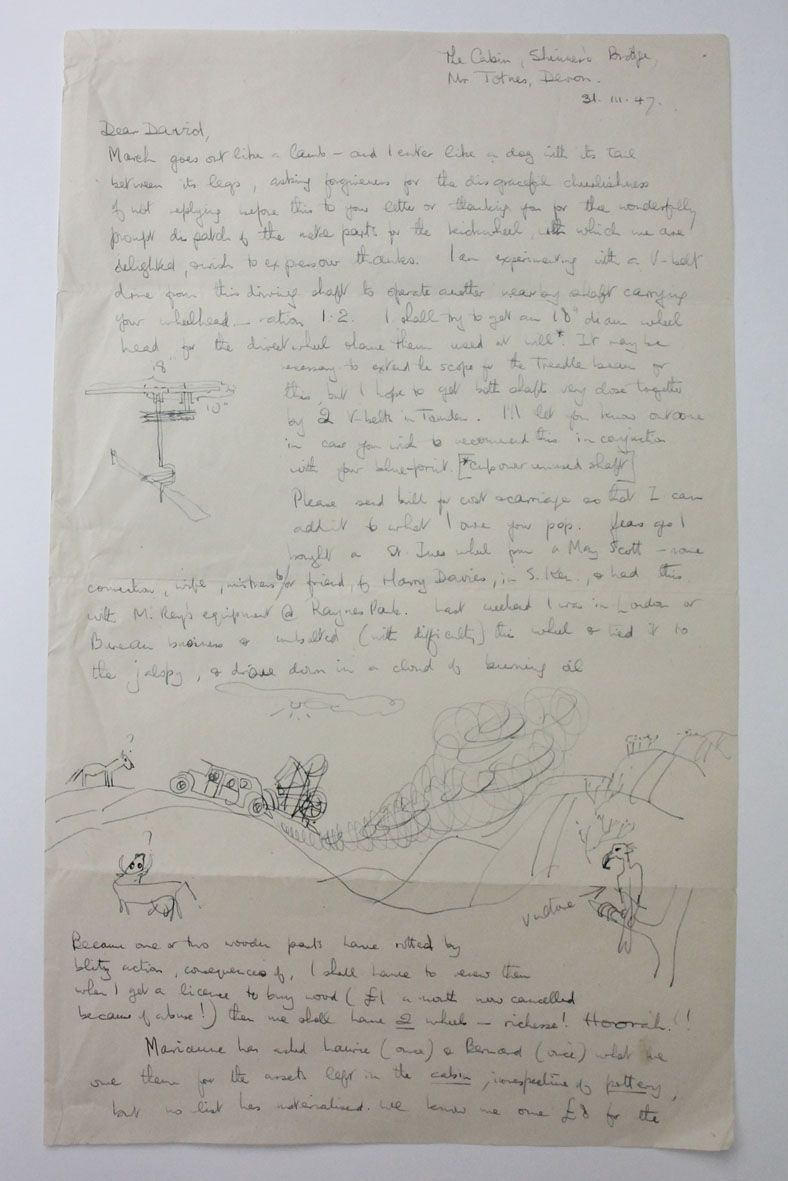 The Cabin, Shinner's Bridge,
Nr. Totnes, Devon.
31. III. 47.
Dear David,
March goes out like a lamb – and I enter like a dog with its tail
between its legs, asking forgiveness for the disgraceful churlishness
of not replying before this to your letter or thanking you for the wonderfully
prompt dispatch of the metal parts for the kickwheel, with which we are
delighted, & wish to express our thanks. I am experimenting with a V-belt
drive from this driving shaft to operate another nearby shaft carrying
your wheelhead – ration 1:2. I shall try to get an 18" diam wheel
head for the direct wheel & have them used at will* It may be
necessary to extend the scope for the Treadle beam for
this, but I hope to get both shafts very close together
by 2 V-belts in Tandem. I'll let you know outcome
in case you wish to recommend this in conjunction
with your blue-print. [*cup over unused shaft]
18"
10"
Please send bill for cost & carriage so that I can
add it to what I owe your pop. Years ago I
bought a St. Ives wheel from a May Scott – some
connection, wife, mistress &/or friend, of Harry Davies, in S. Ken., & had this
with M. Rey's equipment @ Raynes Park. Last weekend I was in London on
Bureau business & unbolted (with difficulty) this wheel & tied it to
the jalopy, & drove down in a cloud of burning oil
?
?
vulture
Because one or two wooden parts have rotted by
blitz action, consequences of, I shall have to renew them
when I get a licence to buy wood (£1 a month now cancelled
because of abuse!) then we shall have 2 wheels – richesse! Hoorah!!
Marianne has asked Laurie (once) & Bernard (once) what we
owe them for the assets left in the cabin, irrespective of pottery,
but no list has materialised. We know we owe £8 for the